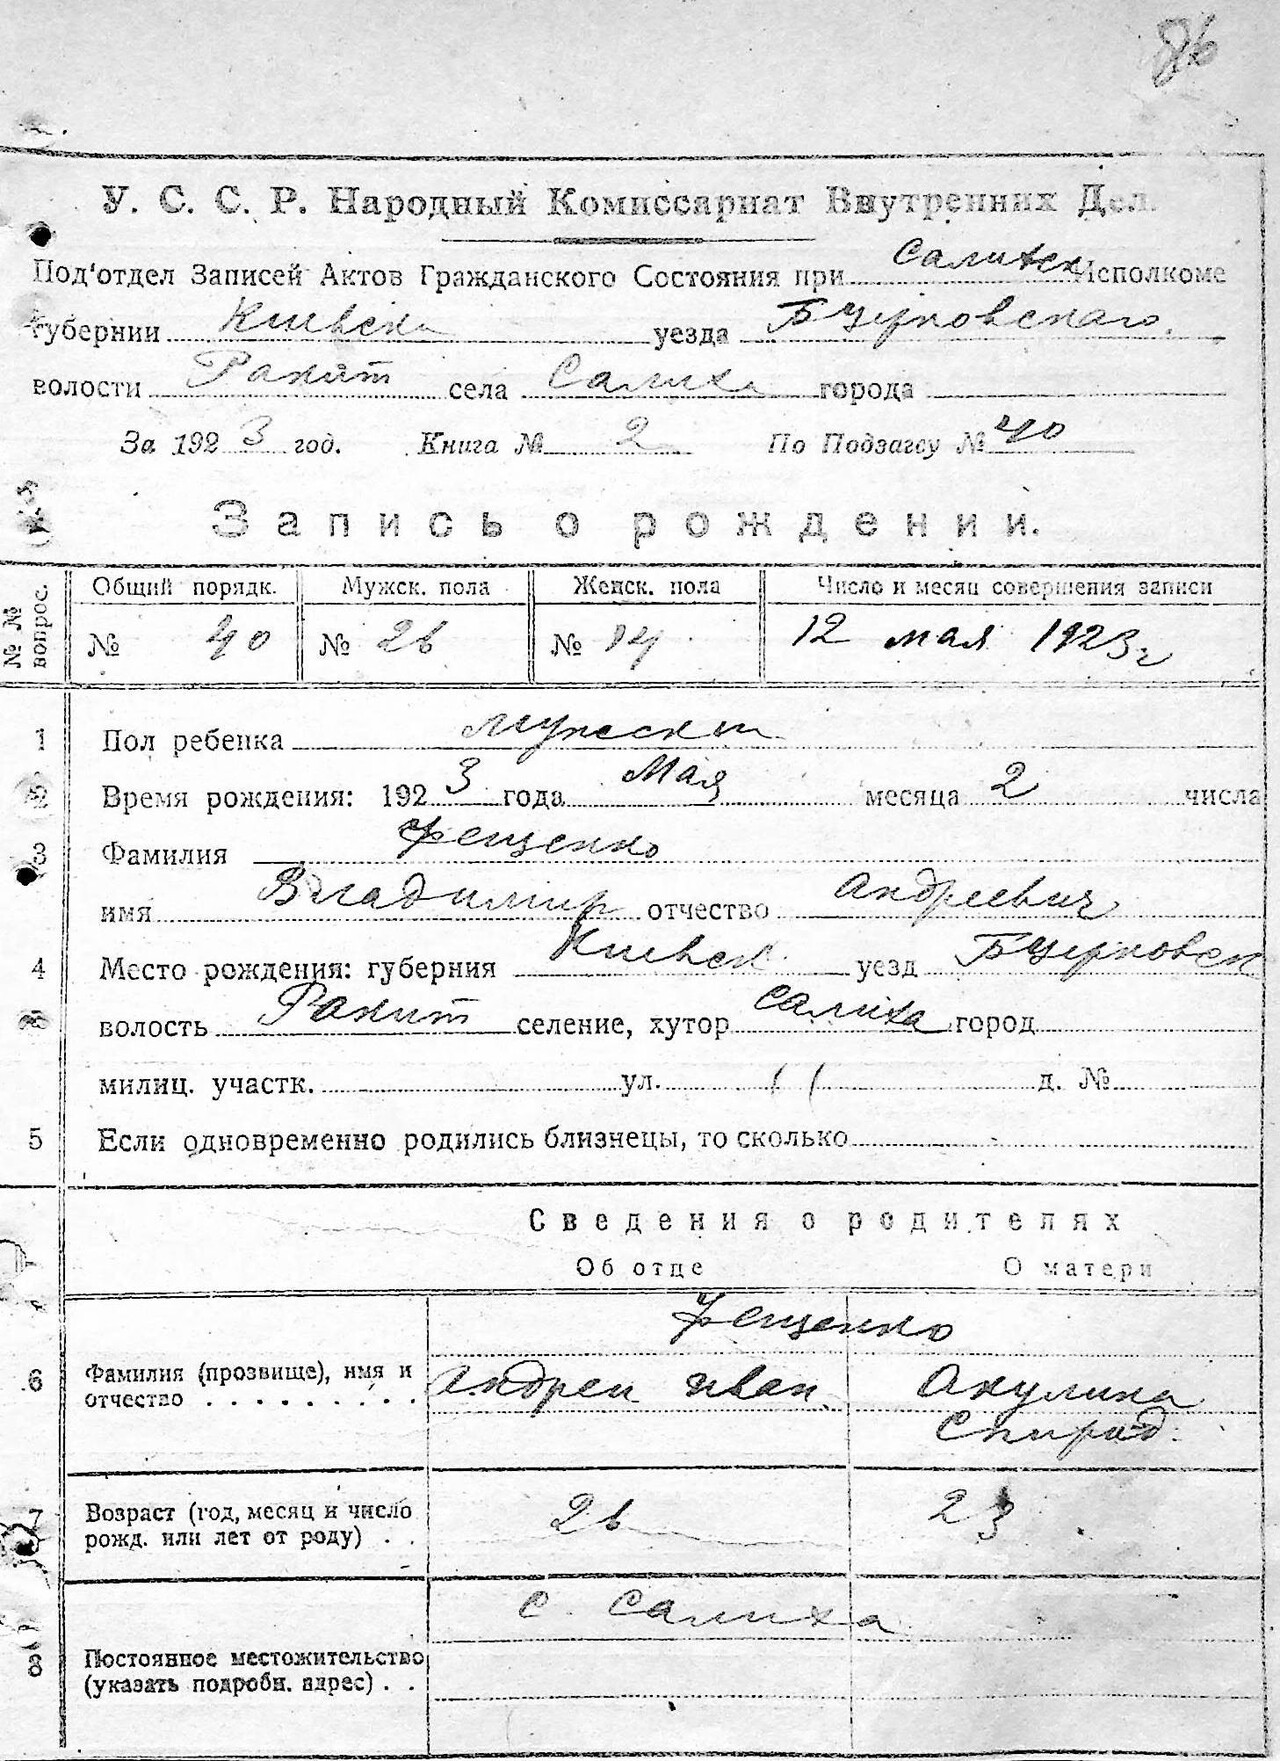 86
У. С. С. Р. Народный Комиссариат Внутренних Дел.
Под'отдел Записей Актов Гражданского Состояния при Салихск Исполкоме
губернии Киевск уезда Бцерковскаго
волости Ракит села Салиха города
За 1923 год. Книга № 2 По Подзагсу № 40
Запись о рождении.
№ № вопрос. Общий порядк. Мужск. пола Женск. пола Число и месяц совершения записи
№ 40 № 26 № 14 12 мая 1923 г
1 Пол ребенка мужеский
2 Время рождения: 1923 года Мая месяца 2 числа
3 Фамилия Фещенко
имя Владимир отчество Андреевич
4 Место рождения: губерния Киевск уезд Бцерковск
волость Ракит селение, хутор Салиха город
милиц. участк. ул. д. №
5 Если одновременно родились близнецы, то сколько
Сведения о родителях
Об отце О матери
Фещенко
6 Фамилия (прозвище), имя и отчество Андреи Иван Акулина
Спирид.
7 Возраст (год, месяц и число рожд. или лет от роду) 26 23
с. Салиха
8 Постоянное местожительство
(указать подробн. адрес)